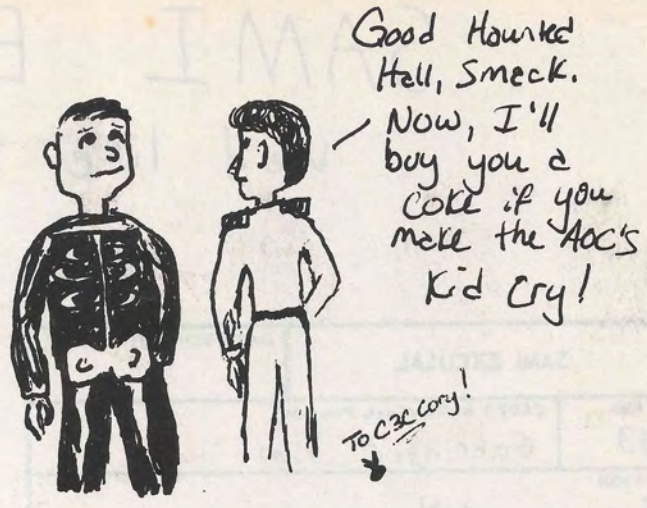 Good Haunted
Hall, Smack.
Now, I'll
buy you a
coke if you
make the AOC's
kid cry!
To C3C Cory!